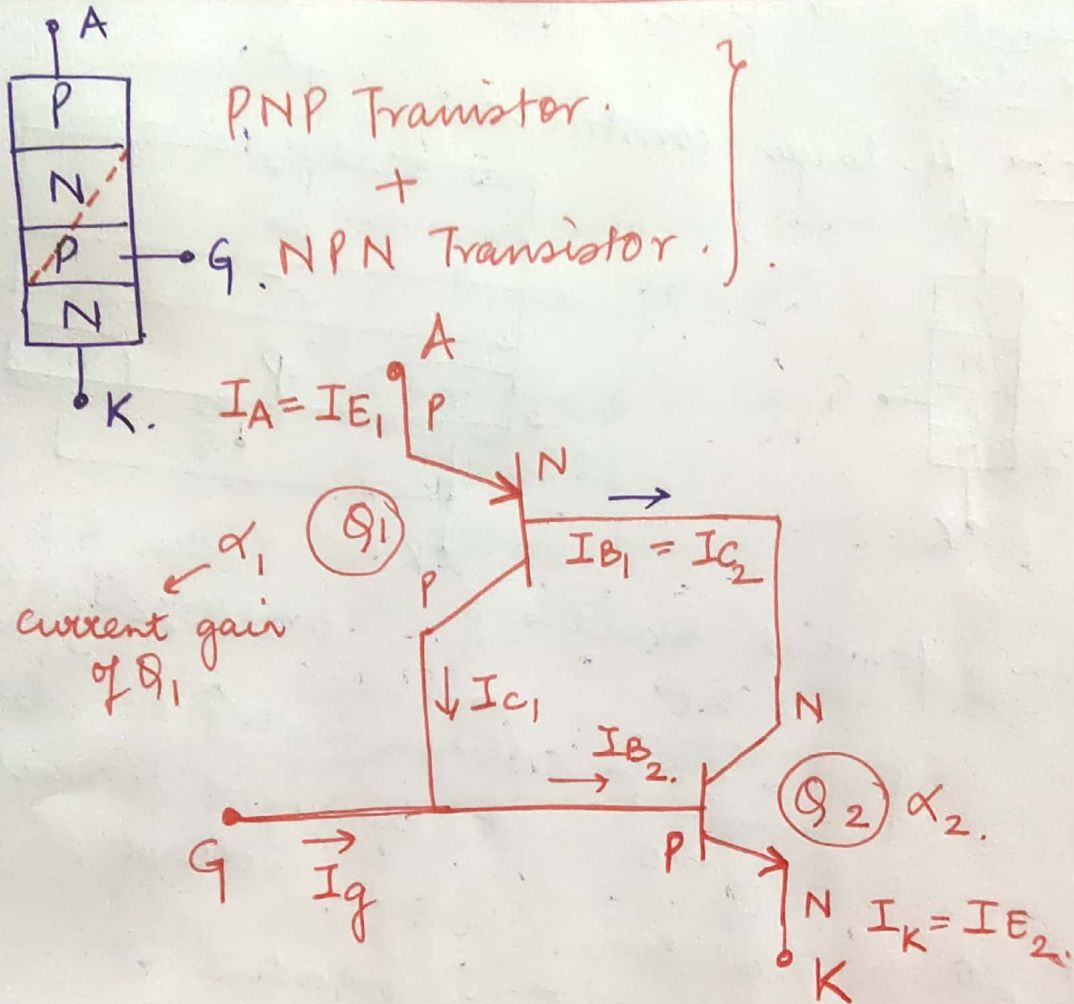 A
P
N
P
N
G.
K.
PNP Transistor.
+
NPN Transistor.
A
I_A = I_E₁
P
N
Q₁
α₁
current gain
of Q₁
I_B₁ = I_C₂
P
↓ I_C₁
N
I_B₂.
Q₂ α₂.
G
I_g
P
N I_K = I_E₂.
K